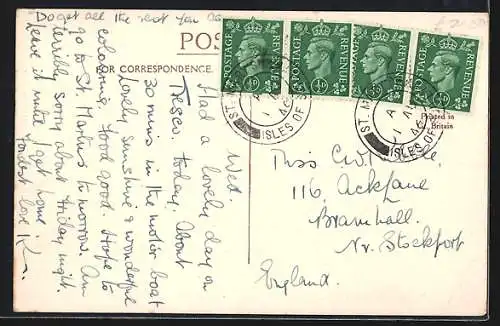 Do get all the rest you can
POS
FOR CORRESPONDENCE.
Wed.
Had a lovely day on
Tresco today. About
30 mins in the motor boat
Lovely sunshine & wonderful
colouring. Food good. Hope to
go to St. Martins to-morrow. Am
terribly sorry about Friday night.
Leave it until I get home.
Fondest love K
POSTAGE REVENUE
½D
POSTAGE REVENUE
½D
POSTAGE REVENUE
½D
POSTAGE REVENUE
½D
ISLES OF
ST. M
ISLES OF
Printed in
Britain
Miss C.W.
116 Ack Lane
Bramhall.
Nr. Stockport
England.